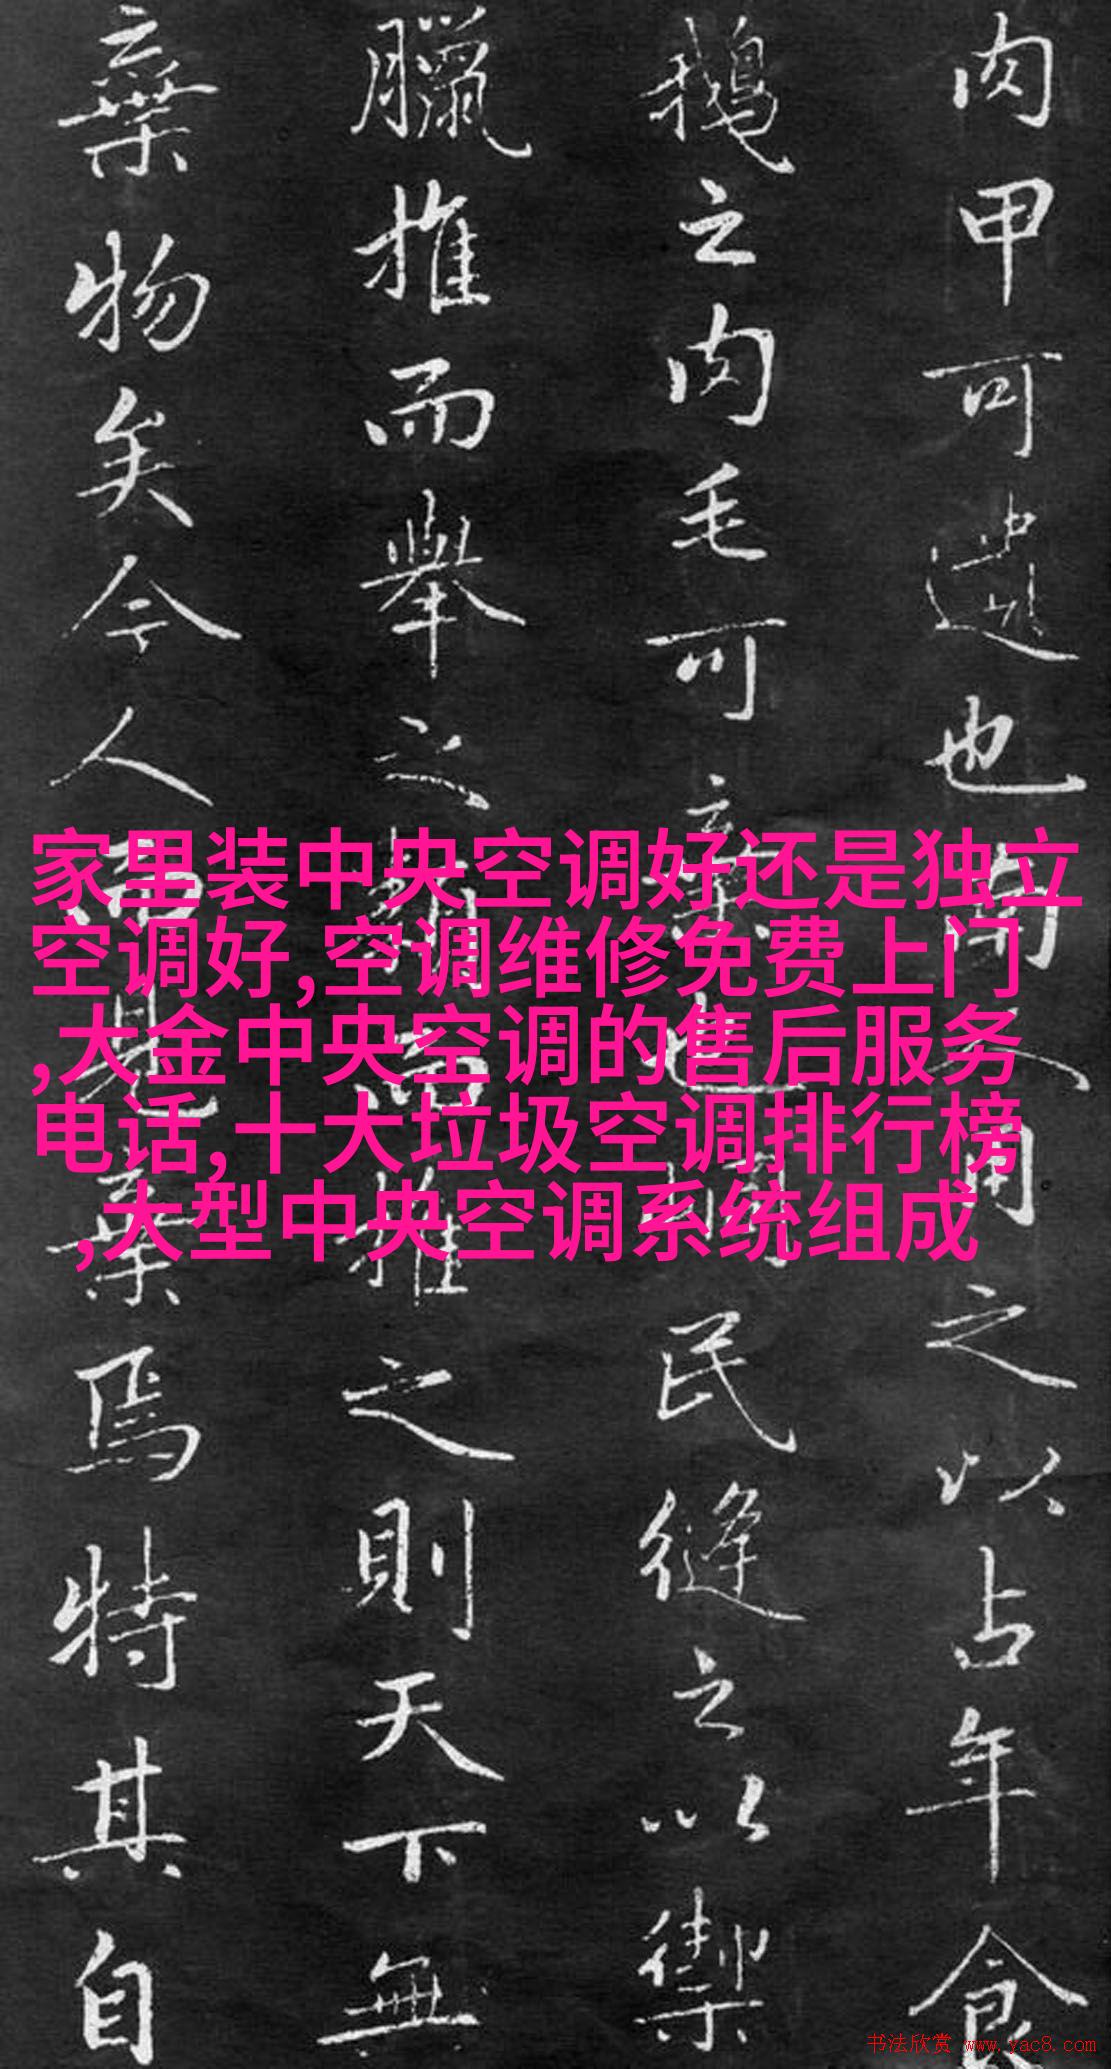 肉甲可遺也南人用之以占年食
鵝之肉毛可棄也峒民縫之以禦
臘推而舉之類而推之則天下無
棄物矣今人而見棄焉特其自
家里装中央空调好还是独立
空调好,空调维修免费上门
,大金中央空调的售后服务
电话,十大垃圾空调排行榜
,大型中央空调系统组成
书法欣赏 www.yac8.com